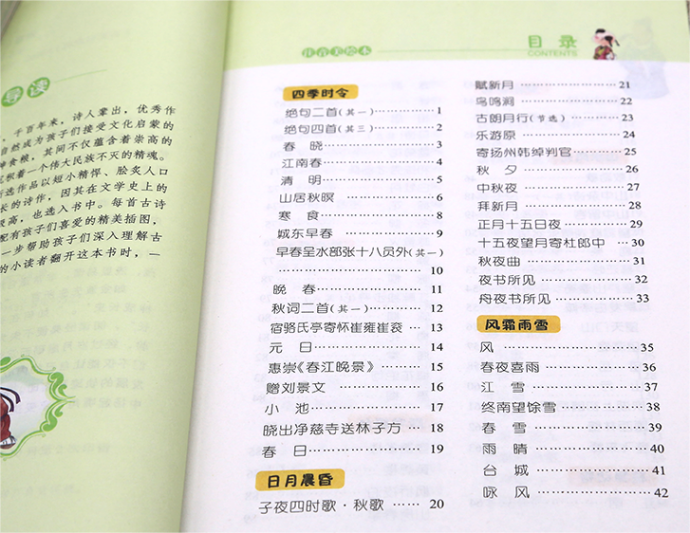 导读
，千百年来，诗人辈出，优秀作
自然成为孩子们接受文化启蒙的
神食粮，其间不仅蕴含着崇高的
积着一个伟大民族不灭的精魂。
选作品以短小精悍、脍炙人口
长的诗作，因其在文学史上的
极高，也选入书中。每首古诗
配有孩子们喜爱的精美插图，
一步帮助孩子们深入理解古
的小读者翻开这本书时，一
注音美绘本
目录
CONTENTS
四季时令
绝句二首(其一)……………1
绝句四首(其三)……………2
春 晓……………3
江南春……………4
清 明……………5
山居秋暝……………6
寒 食……………8
城东早春……………9
早春呈水部张十八员外(其一)
……………10
晚 春……………11
秋词二首(其一)……………12
宿骆氏亭寄怀崔雍崔衮……13
元 日……………14
惠崇《春江晚景》……………15
赠刘景文……………16
小 池……………17
晓出净慈寺送林子方……18
春 日……………19
日月晨昏
子夜四时歌·秋歌……20
赋新月……………21
鸟鸣涧……………22
古朗月行(节选)……………23
乐游原……………24
寄扬州韩绰判官……………25
秋 夕……………26
中秋夜……………27
拜新月……………28
正月十五日夜……………29
十五夜望月寄杜郎中……30
秋夜曲……………31
夜书所见……………32
舟夜书所见……………33
风霜雨雪
风……………35
春夜喜雨……………36
江 雪……………37
终南望馀雪……………38
春 雪……………39
雨 晴……………40
台 城……………41
咏 风……………42